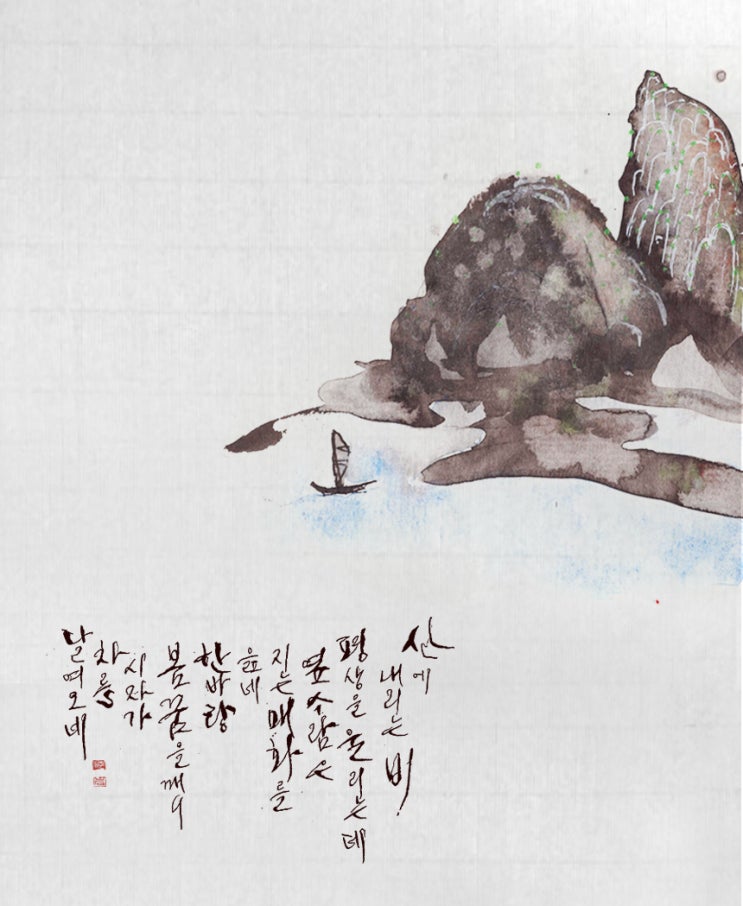 산에
내리는 비
평생을 울리는데
옆 사람은
지는 매화를
읊네
한바탕
봄꿈을 깨니
시자가
차를
달여오네